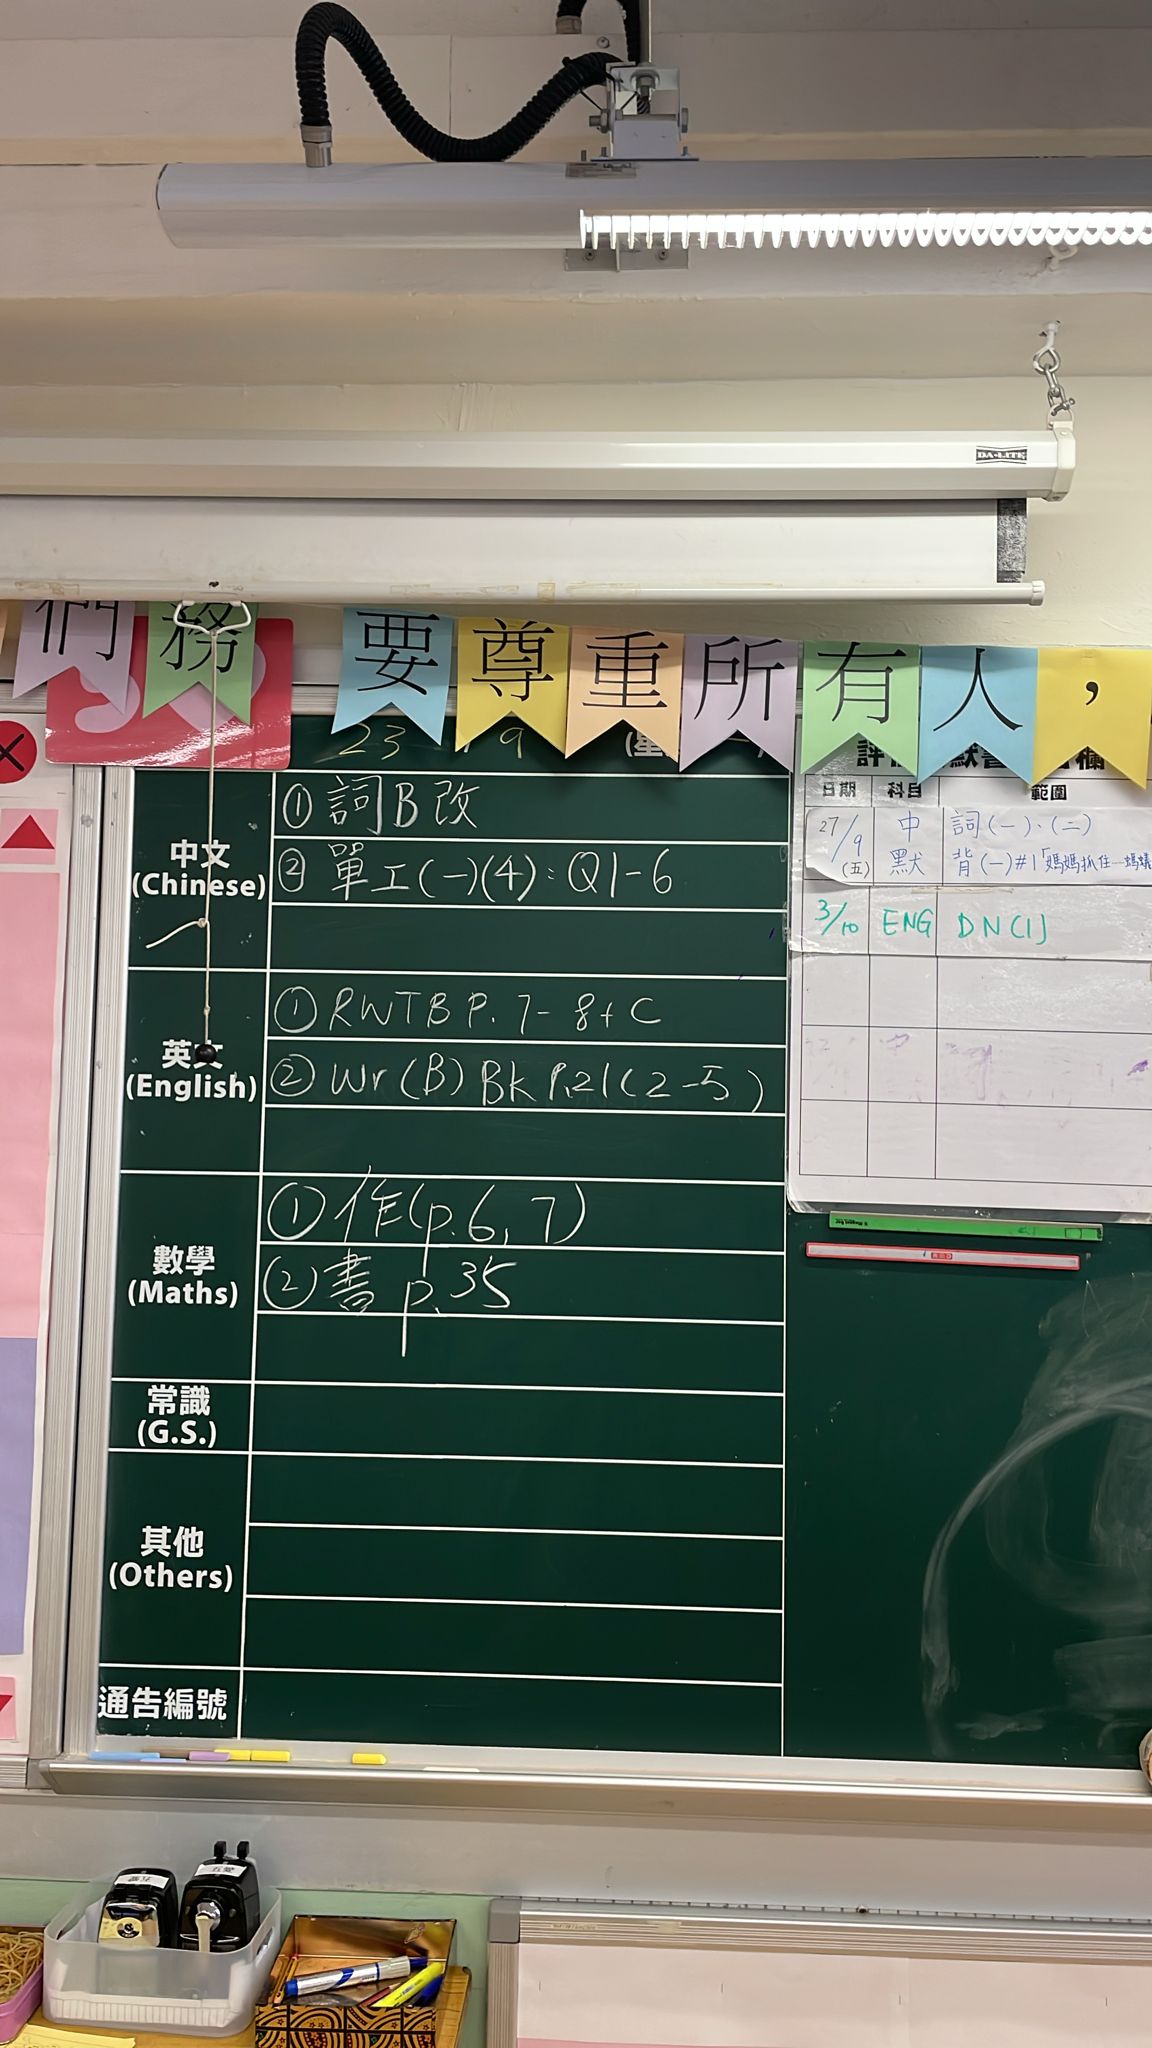 DA-LITE
們務要尊重所有人，
23 / 9 (星
中文
(Chinese)
① 詞B改
② 單工(一)(4)：Q1-6
英文
(English)
① RWTB P. 7-8+C
② Wr(B) Bk P.21(2-5)
數學
(Maths)
① 作(p.6, 7)
② 書 p.35
常識
(G.S.)
其他
(Others)
通告編號
日期 科目 範圍
27/9 (五) 中默 詞(一)、(二)
背(一)#1「媽媽抓住…螞蟻
3/10 ENG DN(1)